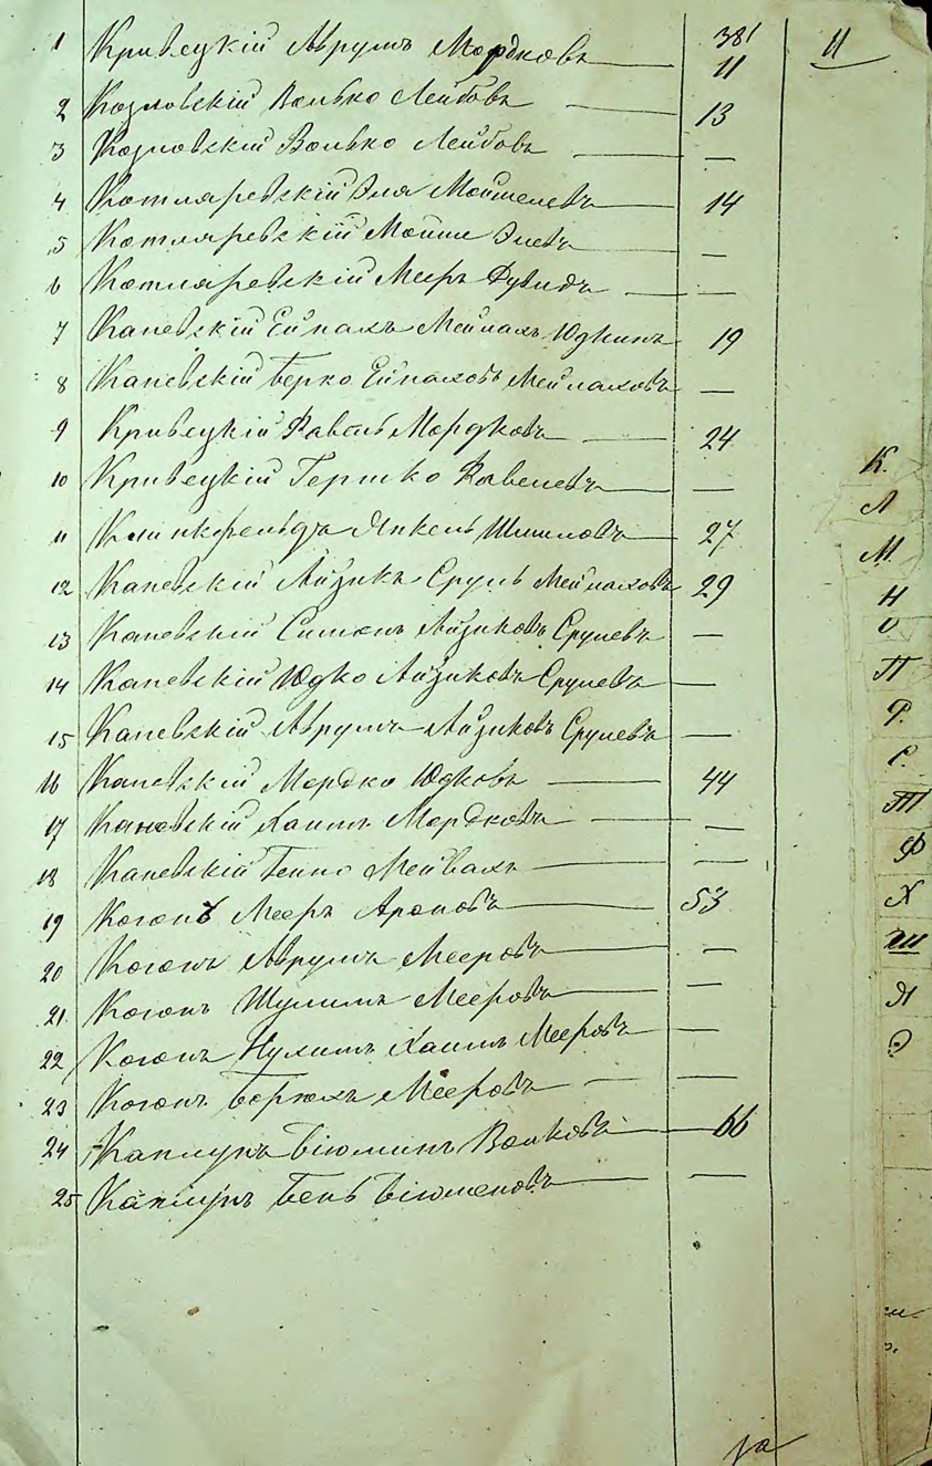 381 11
1 Кривецкій Аврумъ Мордковъ 11
2 Козловскій Волько Лейбовъ 13
3 Козловскій Волько Лейбовъ —
4 Котляревскій Эля Мошелевъ 14
5 Котляревскій Мошш Элевъ —
6 Котляревскій Мееръ Дувидъ —
7 Каневскій Ейнахъ Мейлахъ Юдкинъ 19
8 Каневскій Берко Ейнаховъ Мейлаховъ —
9 Кривецкій Фавель Мордковъ 24
10 Кривецкій Гершко Фавелевъ —
11 Клинкфельдъ Янкель Шмиловъ 27
12 Каневскій Айзикъ Сруль Мейлаховъ 29
13 Каневскій Симонъ Айзиковъ Срулевъ —
14 Каневскій Юдко Айзиковъ Срулевъ —
15 Каневскій Аврумъ Айзиковъ Срулевъ —
16 Каневскій Мордко Юдковъ 44
17 Каневскій Хаимъ Мордковъ —
18 Каневскій —
19 Коганъ Мееръ Ароновъ 53
20 Коганъ Аврумъ Мееровъ —
21 Коганъ Шулимъ Мееровъ —
22 Коганъ Нухимъ Хаимъ Мееровъ —
23 Коганъ Борухъ Мееровъ —
24 Каплунъ Біюминъ Волковъ 66
25 Каплунъ Бень Біюменовъ —
К.
Л
М.
Н
О
П
Р.
С.
Т
Ф
Х
Ш
Я
Э